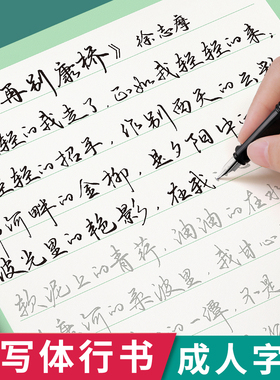 再别康桥》 徐志摩
轻的我走了，正如我轻轻的来，
轻的招手，作别西天的云
河畔的金柳，是夕阳中
波光里的艳影，在我
软泥上的青荇，油油的在
康河的柔波里，我甘心
的一潭，不是
写体行书 成人字